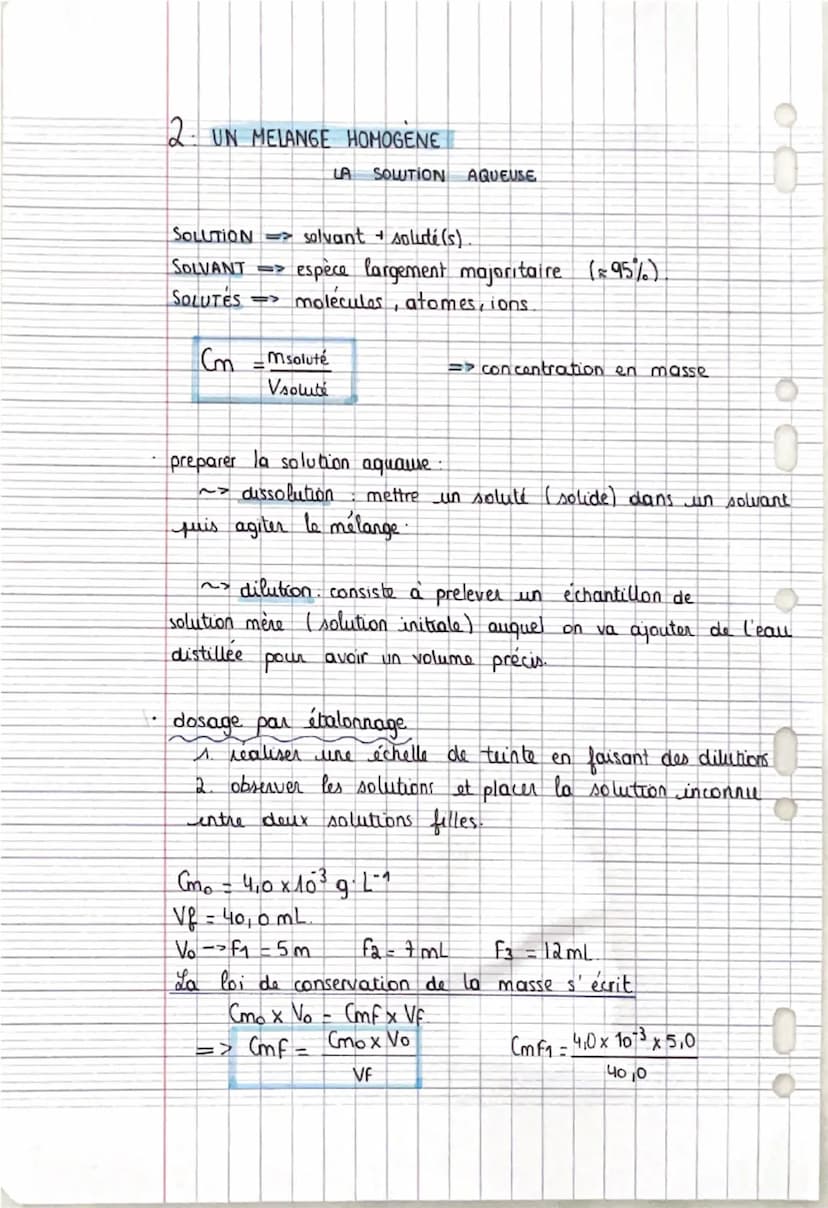 2. UN MELANGE HOMOGÈNE
LA SOLUTION AQUEUSE
SOLUTION => solvant + soluté(s).
SOLVANT => espèce largement majoritaire (≈95%).
SOLUTÉS => molécules, atomes, ions.
Cm = msoluté / Vsoluté => concentration en masse
· preparer la solution aqueuse :
~> dissolution : mettre un soluté (solide) dans un solvant
puis agiter le mélange.
~> dilution : consiste à prelever un échantillon de
solution mère (solution initiale) auquel on va ajouter de l'eau
distillée pour avoir un volume précis.
· dosage par étalonnage
1. réaliser une échelle de teinte en faisant des dilutions
2. observer les solutions et placer la solution inconnu
entre deux solutions filles.
Cm0 = 4,0 x 10^-3 g·L^-1
Vf = 40,0 mL.
V0 -> F1 = 5 m F2 = 7 mL F3 = 12 mL.
La loi de conservation de la masse s'écrit
Cm0 x V0 = Cmf x VF.
=> Cmf = Cm0 x V0 / VF CmF1 = 4,0 x 10^-3 x 5,0 / 40,0